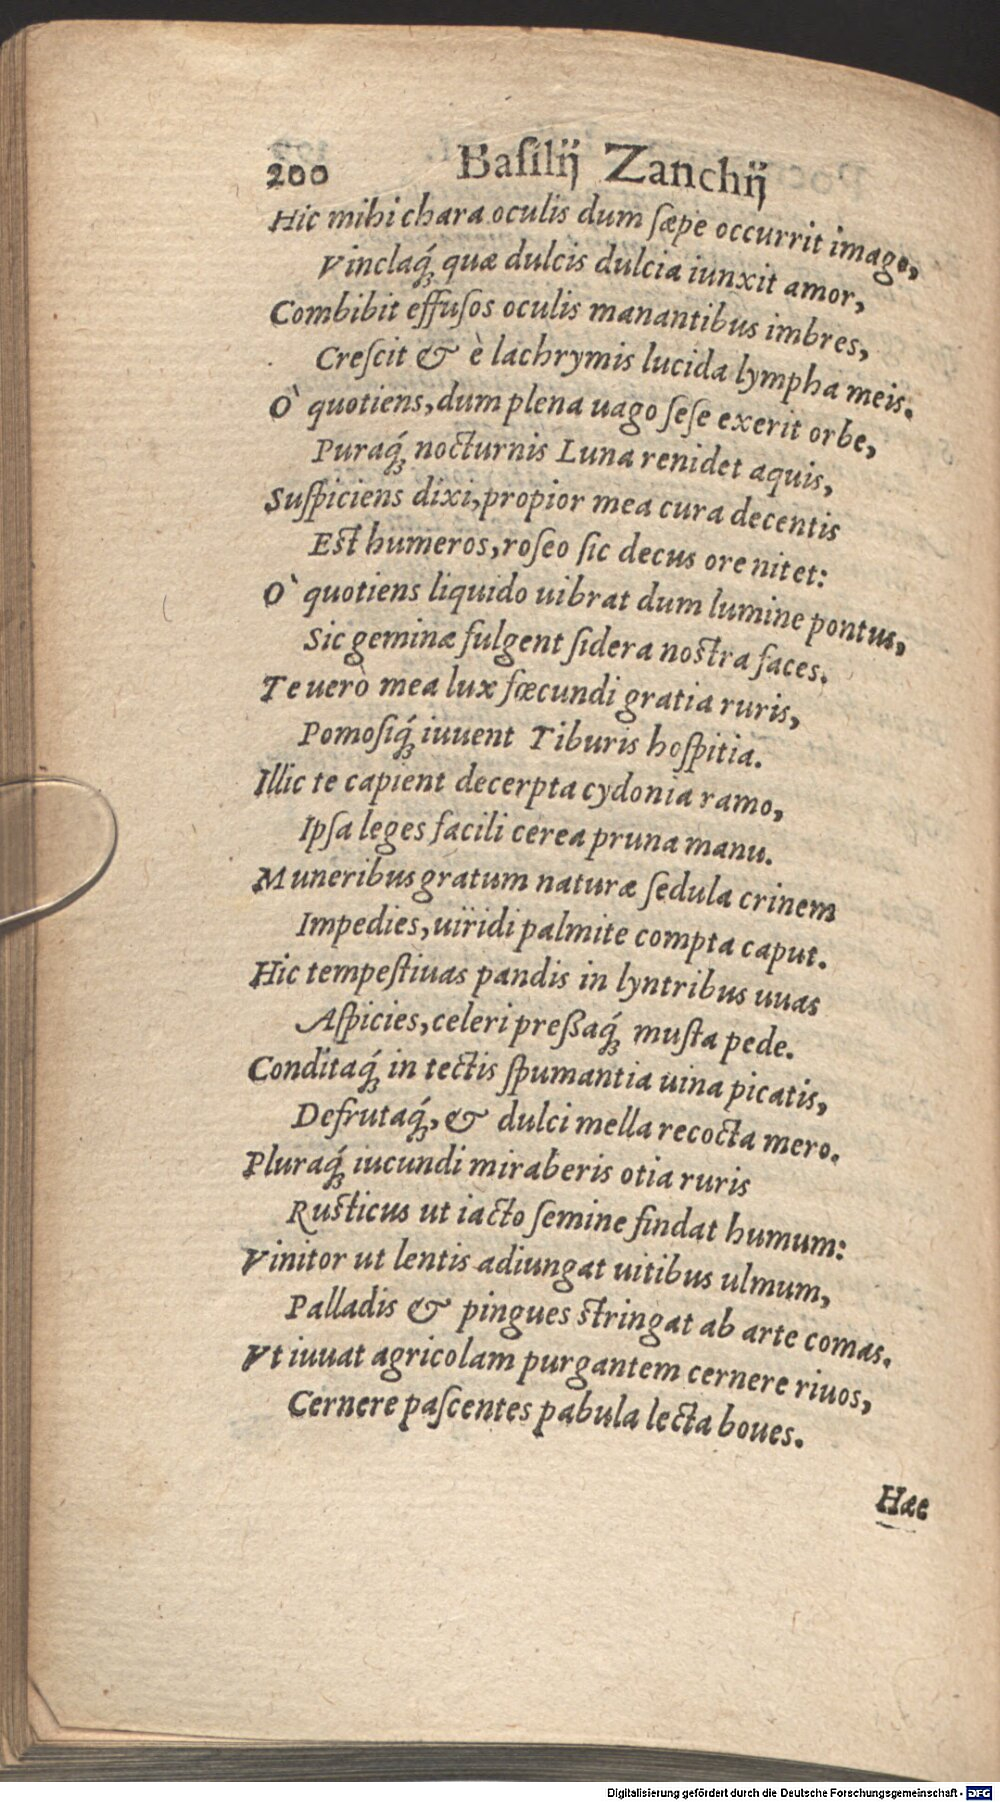 200 Baſilij Zanchij
Hic mihi chara oculis dum ſæpe occurrit imago,
Vinclaq́; quæ dulcis dulcia iunxit amor,
Combibit effuſos oculis manantibus imbres,
Creſcit & è lachrymis lucida lympha meis.
O' quotiens, dum plena uago ſeſe exerit orbe,
Puraq́; nocturnis Luna renidet aquis,
Suſpiciens dixi, propior mea cura decentis
Eſt humeros, roſeo ſic decus ore nitet:
O' quotiens liquido uibrat dum lumine pontus,
Sic geminæ fulgent ſidera noſtra faces.
Te uerò mea lux fœcundi gratia ruris,
Pomoſiq́; iuuent Tiburis hoſpitia.
Illic te capient decerpta cydonia ramo,
Ipſa leges facili cerea pruna manu.
Muneribus gratum naturæ ſedula crinem
Impedies, uiridi palmite compta caput.
Hic tempeſtiuas pandis in lyntribus uuas
Aſpicies, celeri preßaq́; muſta pede.
Conditaq́; in tectis ſpumantia uina picatis,
Defrutaq́;, & dulci mella recocta mero.
Pluraq́; iucundi miraberis otia ruris
Ruſticus ut iacto ſemine findat humum:
Vinitor ut lentis adiungat uitibus ulmum,
Palladis & pingues ſtringat ab arte comas.
Vt iuuat agricolam purgantem cernere riuos,
Cernere paſcentes pabula lecta boues.
Hæc
Digitalisierung gefördert durch die Deutsche Forschungsgemeinschaft - DFG